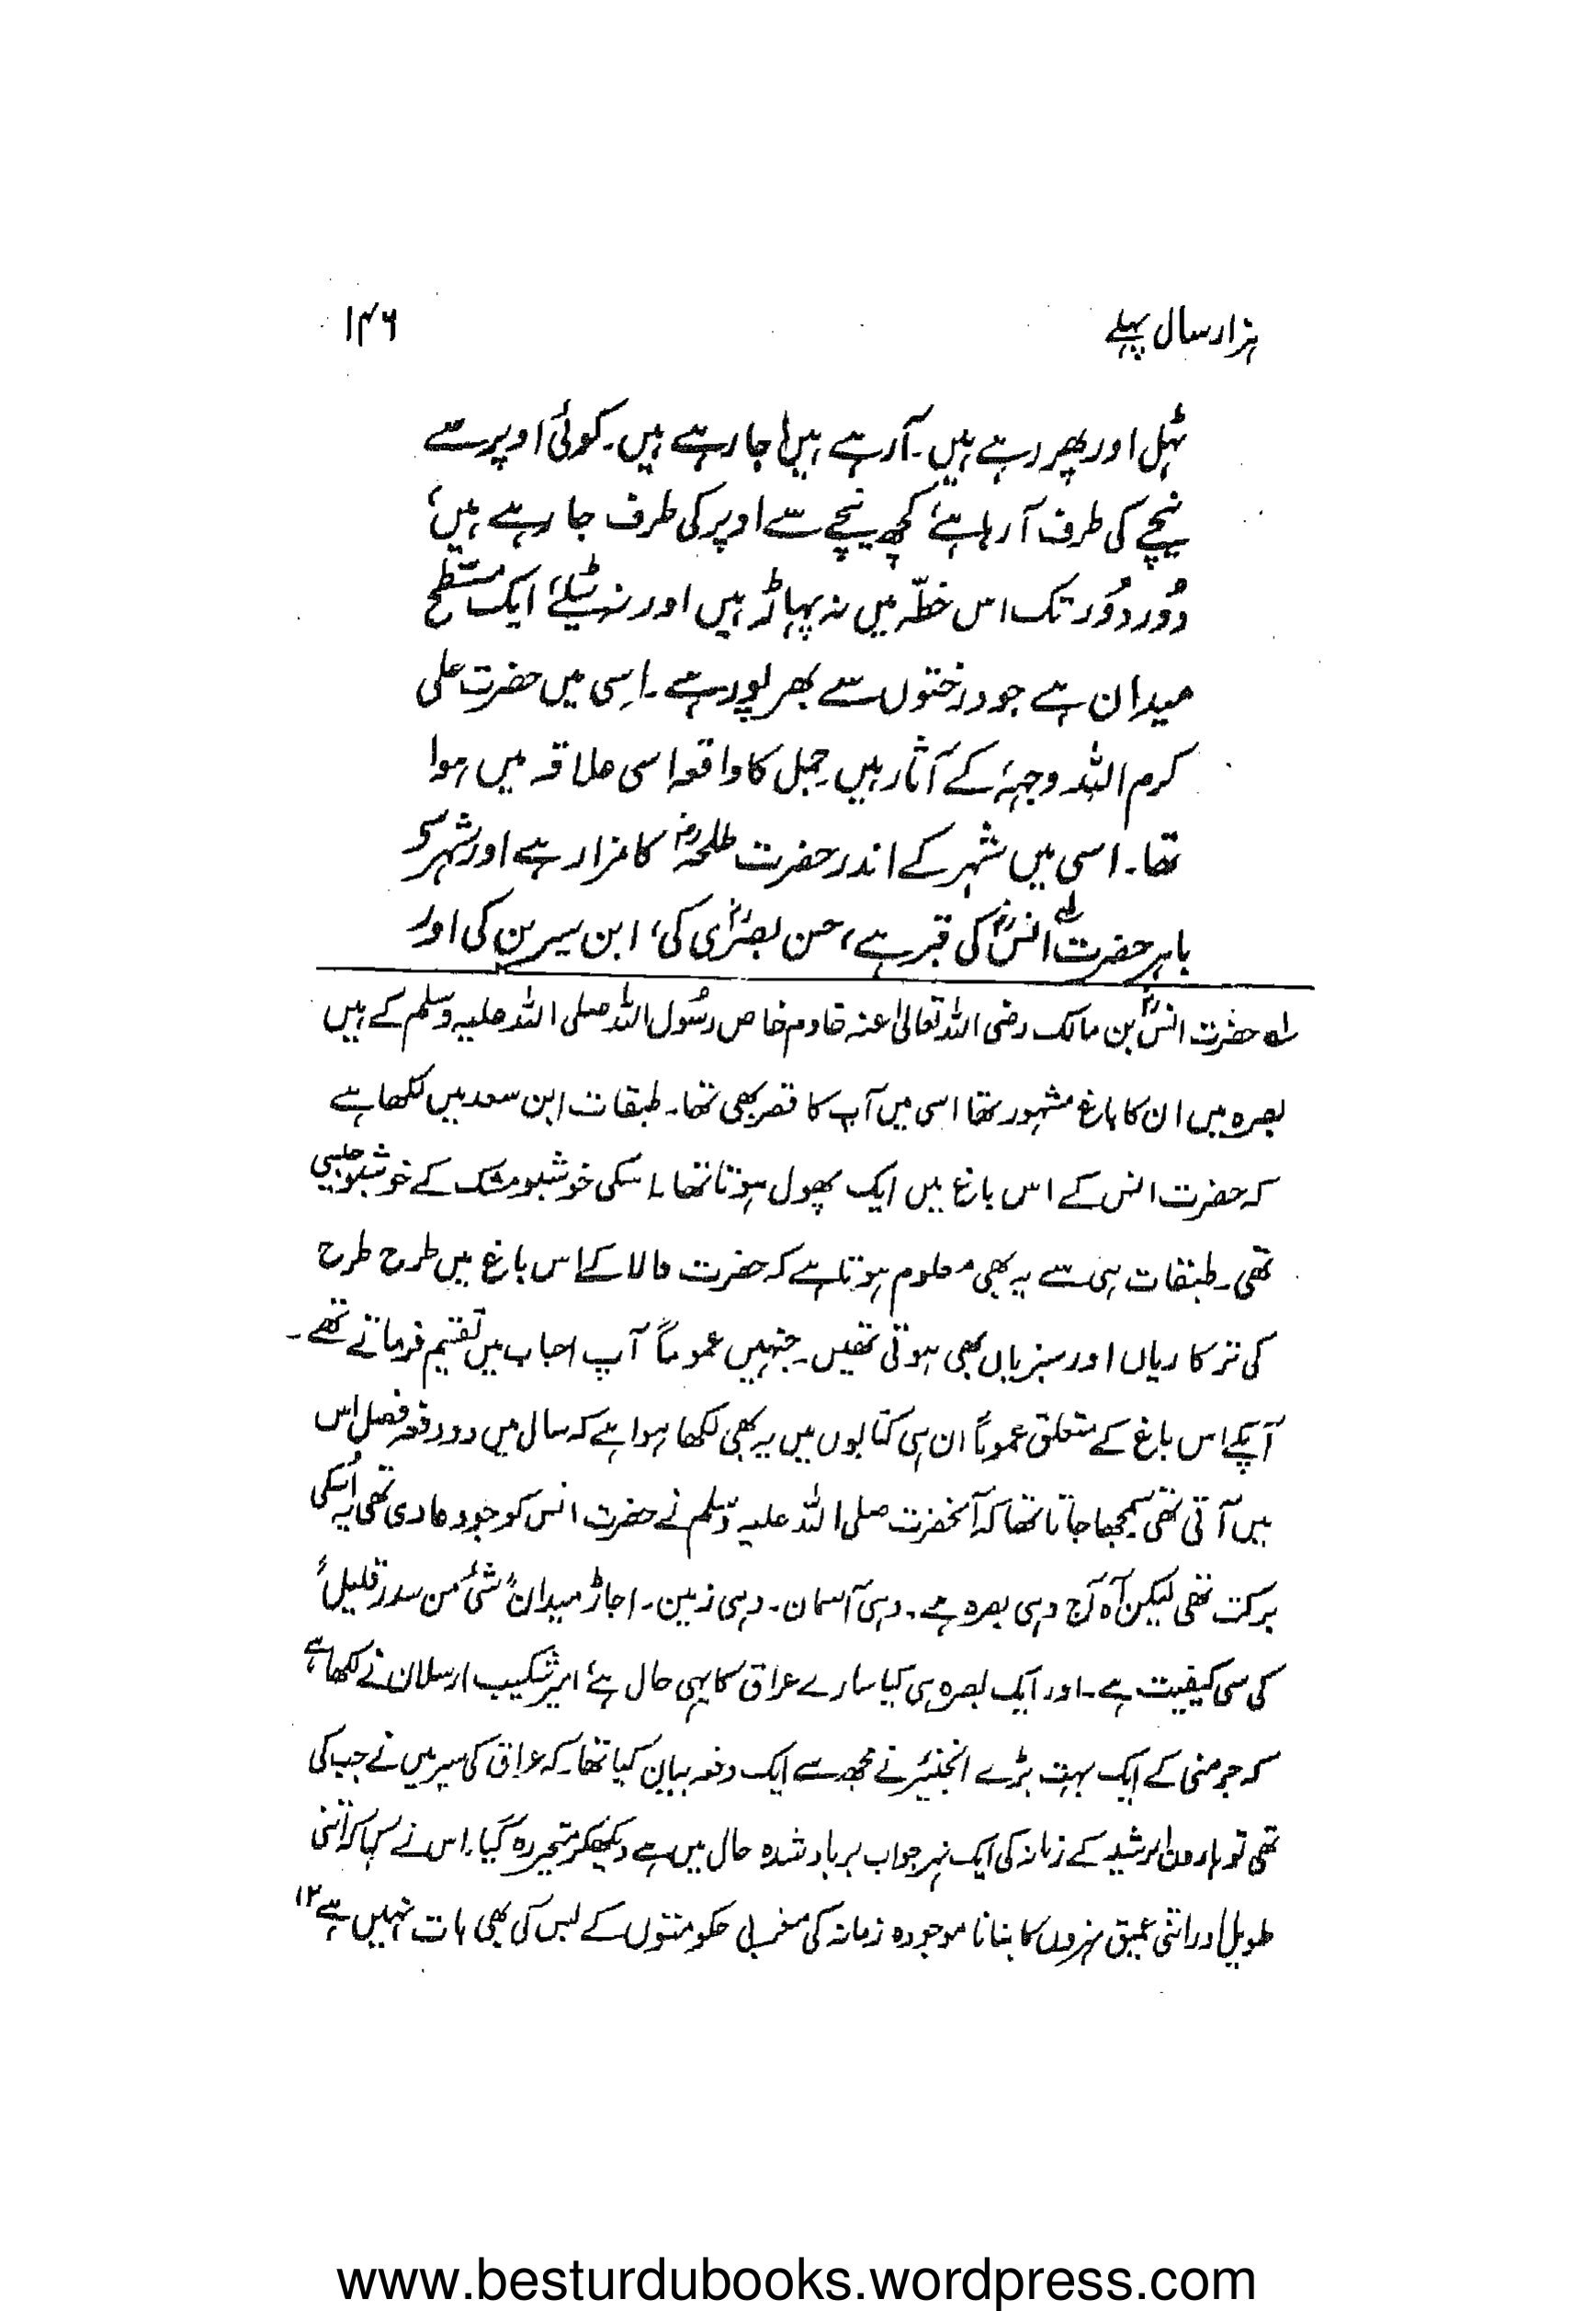 ہزار سال پہلے ۱۴۶
ٹہل اور پھر رہے ہیں۔ آرہے ہیں، جارہے ہیں۔ کوئی اوپر سے
نیچے کی طرف آ رہا ہے، کچھ نیچے سے اوپر کی طرف جا رہے ہیں،
دُور دُور تک اس خطّہ میں نہ پہاڑ ہیں اور نہ ٹیلے، ایک مسطّح
میدان ہے جو درختوں سے بھرپور ہے۔ اِسی میں حضرت علی
کرم اللہ وجہہٗ کے آثار ہیں۔ جمل کا واقعہ اسی علاقہ میں ہوا
تھا۔ اسی میں شہر کے اندر حضرت طلحہؓ کا مزار ہے اور شہر کے
باہر حضرت لہ انسؓ کی قبر ہے، حسن بصریؒ کی، ابن سیرین کی اور
لہ حضرت انسؓ بن مالک رضی اللہ تعالیٰ عنہ خادم خاص رسُول اللہ صلی اللہ علیہ وسلم کے ہیں
بصرہ میں ان کا باغ مشہور تھا اسی میں آپ کا قصر بھی تھا۔ طبقات ابن سعد میں لکھا ہے
کہ حضرت انس کے اس باغ میں ایک پھول ہوتا تھا۔ اسکی خوشبو مشک کے خوشبو جیسی
تھی۔ طبقات ہی سے یہ بھی معلوم ہوتا ہے کہ حضرت والا کے اس باغ میں طرح طرح
کی ترکاریاں اور سبزیاں بھی ہوتی تھیں۔ جنہیں عموماً آپ احباب میں تقسیم فرماتے تھے۔
آپکے اس باغ کے متعلق عموماً ان ہی کتابوں میں یہ بھی لکھا ہوا ہے کہ سال میں دو دفعہ فصل اس
میں آتی تھی سمجھا جاتا تھا کہ آنحضرت صلی اللہ علیہ وسّلم نے حضرت انس کو جو دعا دی تھی یہ اُسکی
برکت تھی لیکن آہ کہ آج وہی بصرہ ہے۔ وہی آسمان۔ وہی زمین۔ اجاڑ میدان، شئ من سدر قلیل،
کی سی کیفیت ہے۔ اور ایک بصرہ ہی کیا سارے عراق کا یہی حال ہے، امیر شکیب ارسلان نے لکھا ہے
کہ جرمنی کے ایک بہت بڑے انجنیئر نے مجھ سے ایک دفعہ بیان کیا تھا۔ کہ عراق کی سیر میں نے جب کی
تھی تو ہارون الرشید کے زمانہ کی ایک نہر جو اب برباد شدہ حال میں ہے دیکھکر متحیر رہ گیا۔ اس نے کہا کہ اتنی
طویل اور اتنی عمیق نہروں کا بنانا موجودہ زمانہ کی مغربی حکومتوں کے بس کی بھی بات نہیں ہے ۱۲
www.besturdubooks.wordpress.com